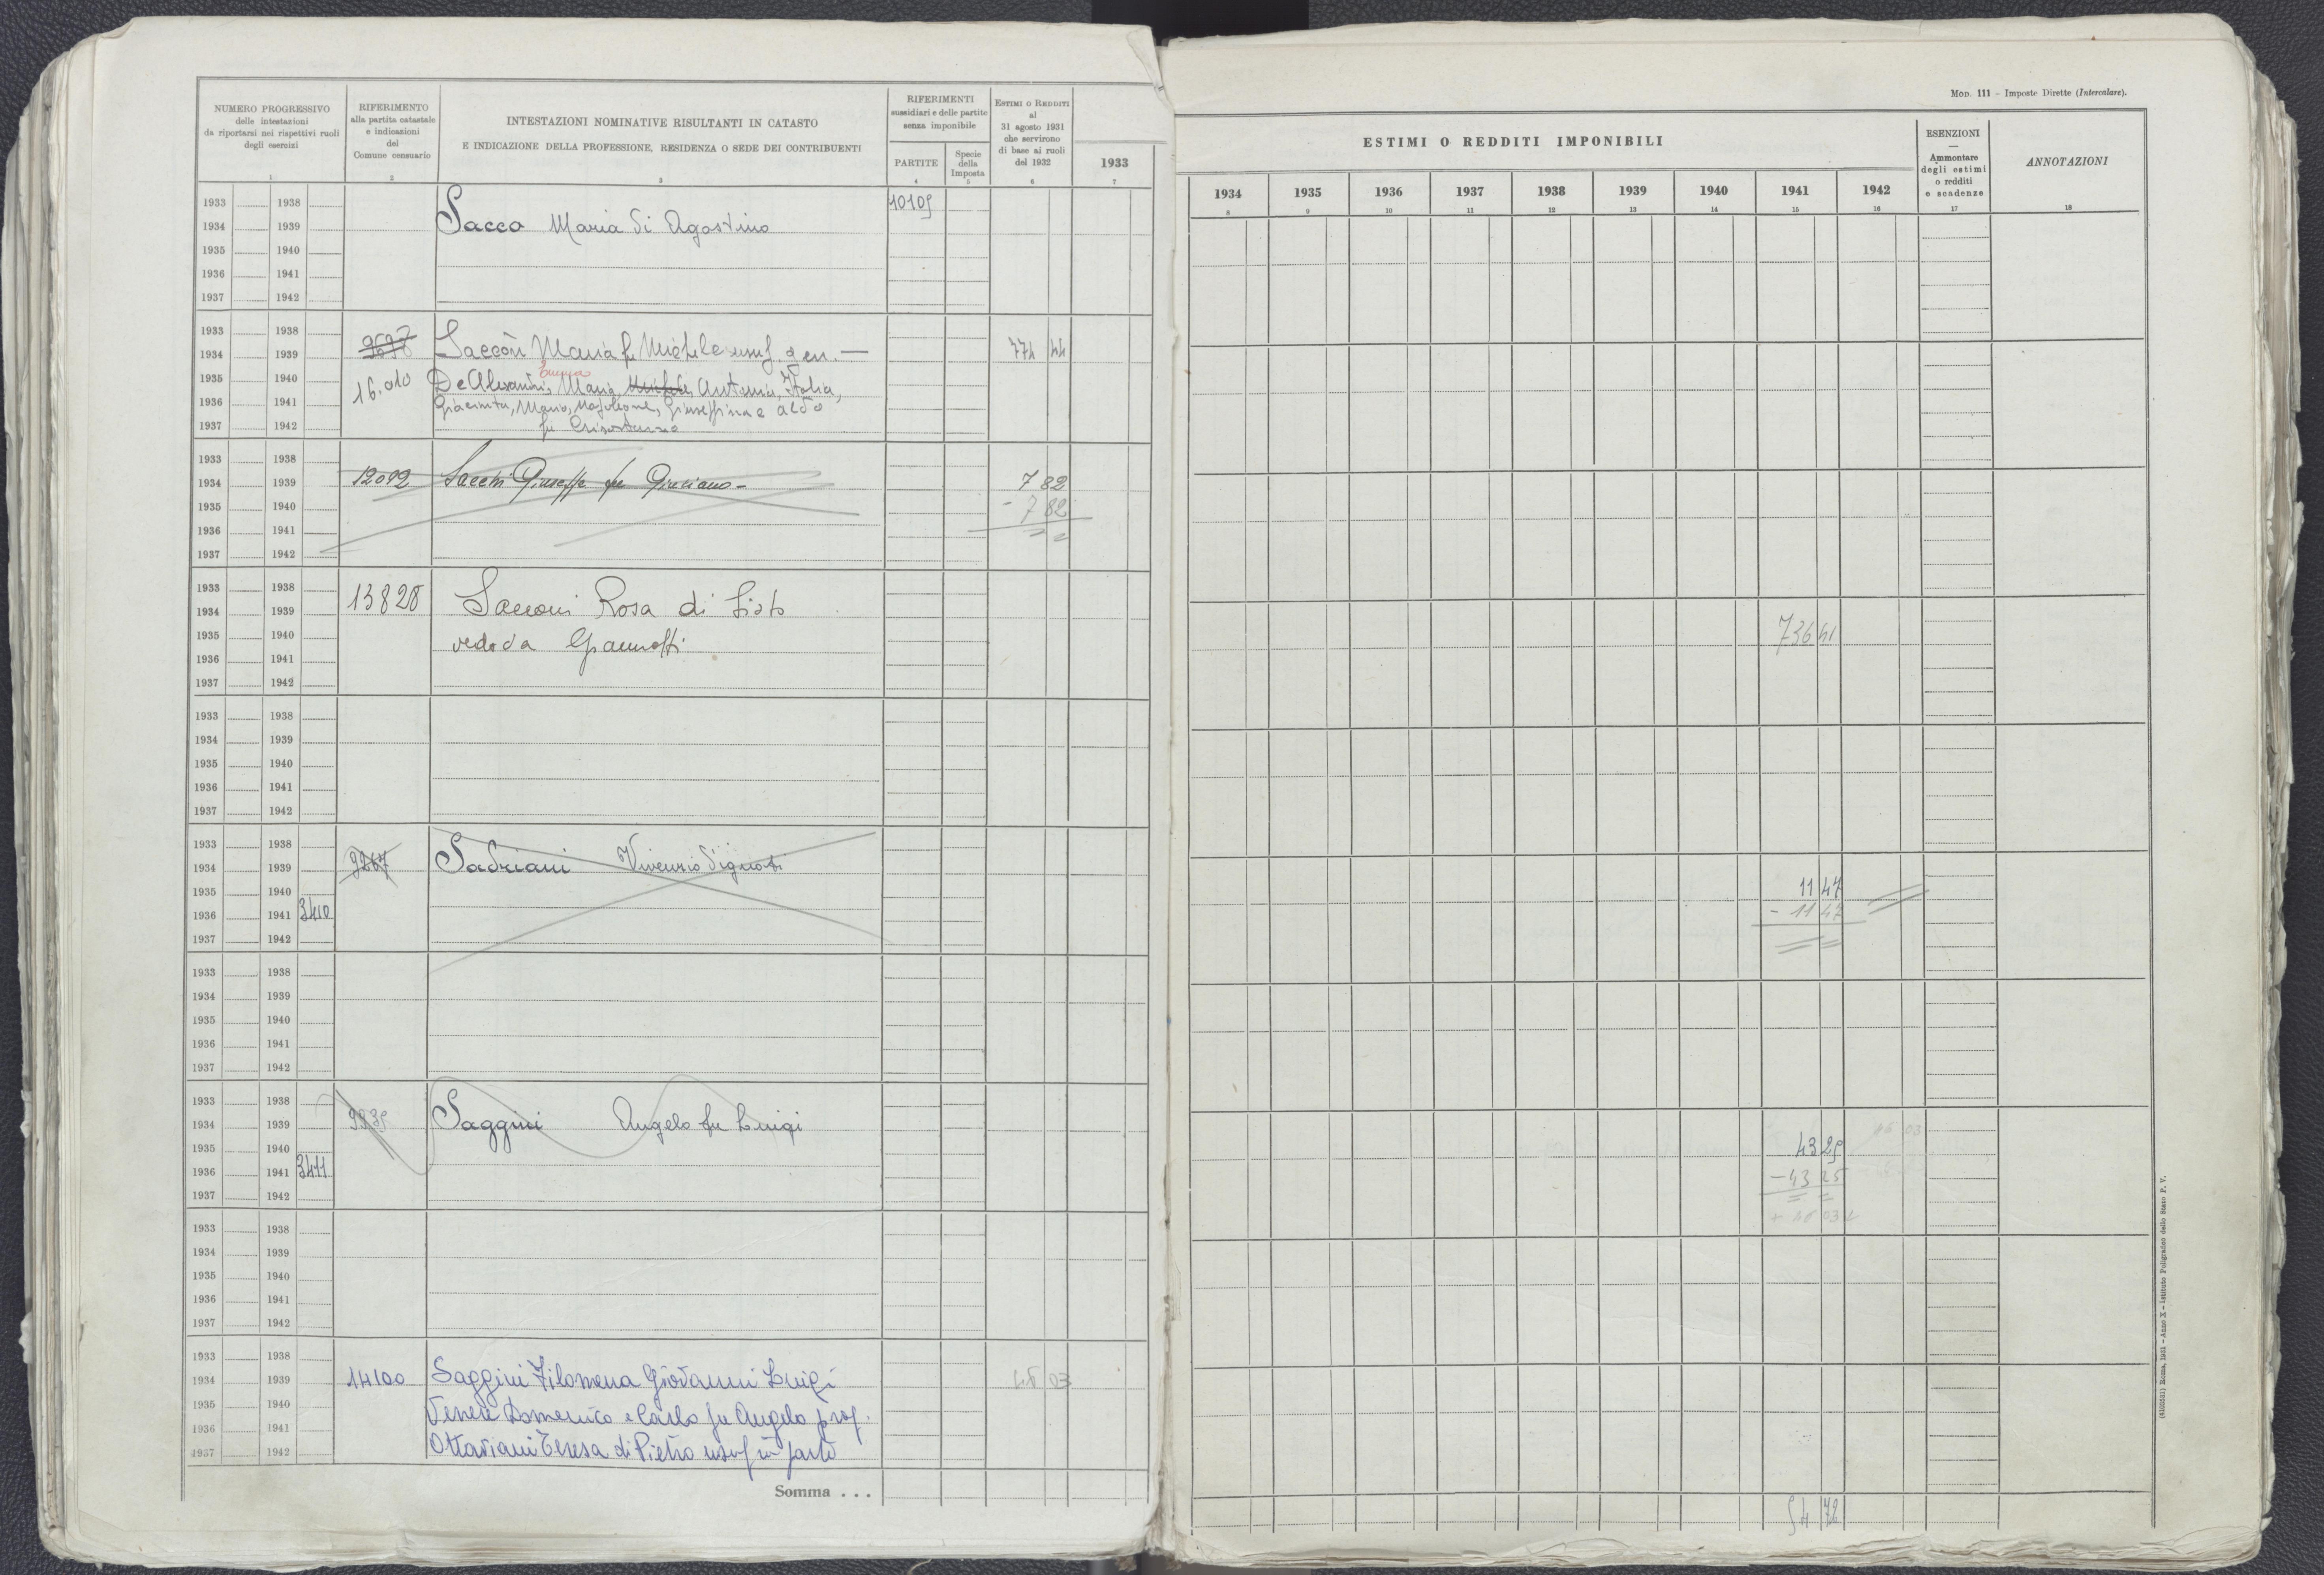 Mod. 111 - Imposte Dirette (Intercalare).
NUMERO PROGRESSIVO
delle intestazioni
da riportarsi nei rispettivi ruoli
degli esercizi
1
RIFERIMENTO
alla partita catastale
e indicazioni
del
Comune censuario
2
INTESTAZIONI NOMINATIVE RISULTANTI IN CATASTO
E INDICAZIONE DELLA PROFESSIONE, RESIDENZA O SEDE DEI CONTRIBUENTI
3
RIFERIMENTI
sussidiari e delle partite
senza imponibile
PARTITE
4
Specie
della
Imposta
5
ESTIMI O REDDITI
al
31 agosto 1931
che servirono
di base ai ruoli
del 1932
6
1933
7
ESTIMI O REDDITI IMPONIBILI
1934 1935 1936 1937 1938 1939 1940 1941 1942
8 9 10 11 12 13 14 15 16
ESENZIONI
—
Ammontare
degli estimi
o redditi
e scadenze
17
ANNOTAZIONI
18
1933 1938 10109
1934 1939 Sacco Maria di Agostino
1935 1940
1936 1941
1937 1942
1933 1938
1934 1939 Maria fu Michele usuf. gen. — 774 44
1935 1940 16.010 De Alesandris, Maria, Antonia, Italia,
1936 1941 Giacinta, Mario, Napoleone, Giuseppina e Aldo
1937 1942 fu
1933 1938
1934 1939 12092 Giuseppe fu 7 82
1935 1940 - 7 82
1936 1941
1937 1942
1933 1938 13828
1934 1939 Sacconi Rosa di Sisto
1935 1940 vedova 736 41
1936 1941
1937 1942
1933 1938
1934 1939
1935 1940
1936 1941
1937 1942
1933 1938
1934 1939 9267 Sadriani
1935 1940 11 47
1936 1941 3410 - 11 47
1937 1942
1933 1938
1934 1939
1935 1940
1936 1941
1937 1942
1933 1938
1934 1939 Saggini Angelo fu Luigi
1935 1940 43 25
1936 1941 3411 - 43 25
1937 1942
1933 1938
1934 1939
1935 1940
1936 1941
1937 1942
1933 1938
1934 1939 14100 Saggini Filomena Giovanni Luigi 46 03
1935 1940 Venere Domenico e Carlo fu Angelo prop.
1936 1941 Ottaviani Teresa di Pietro usuf in parte
1937 1942
Somma . . . 54 72